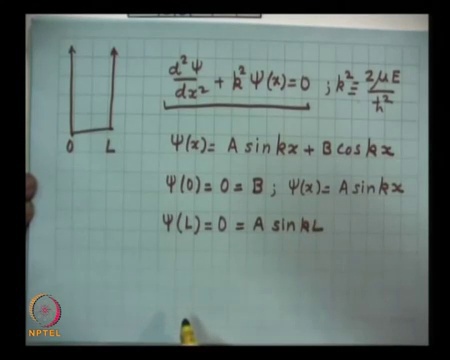 d²Ψ/dx² + k² Ψ(x) = 0 ; k² = 2μE/ħ²
0 L
Ψ(x) = A sin kx + B cos kx
Ψ(0) = 0 = B ; Ψ(x) = A sin kx
Ψ(L) = 0 = A sin kL
NPTEL